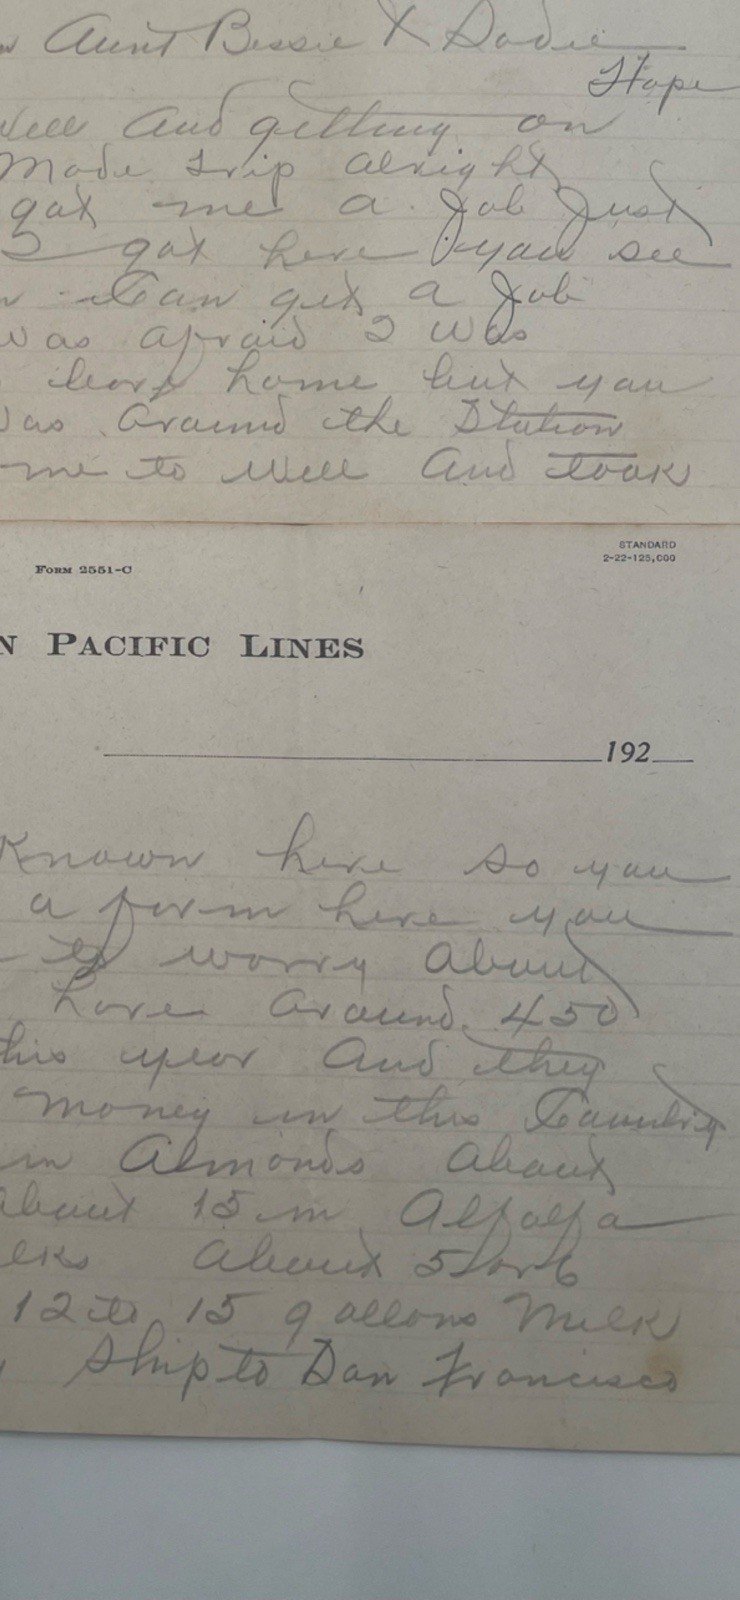 Aunt Bessie & Dadie
Hope
Well and getting on
Made trip alright
got me a Job Just
I got here you see
Can get a Job
was afraid I was
leave home but you
was around the Station
me to Well and took
FORM 2551-C
STANDARD
2-22-125,000
N PACIFIC LINES
192
Known here so you
a farm here you
to worry about
have around 450
this year and they
money in this Country
in Almonds about
about 15 in Alfalfa
about 5 or 6
12 to 15 gallons Milk
Ship to San Francisco